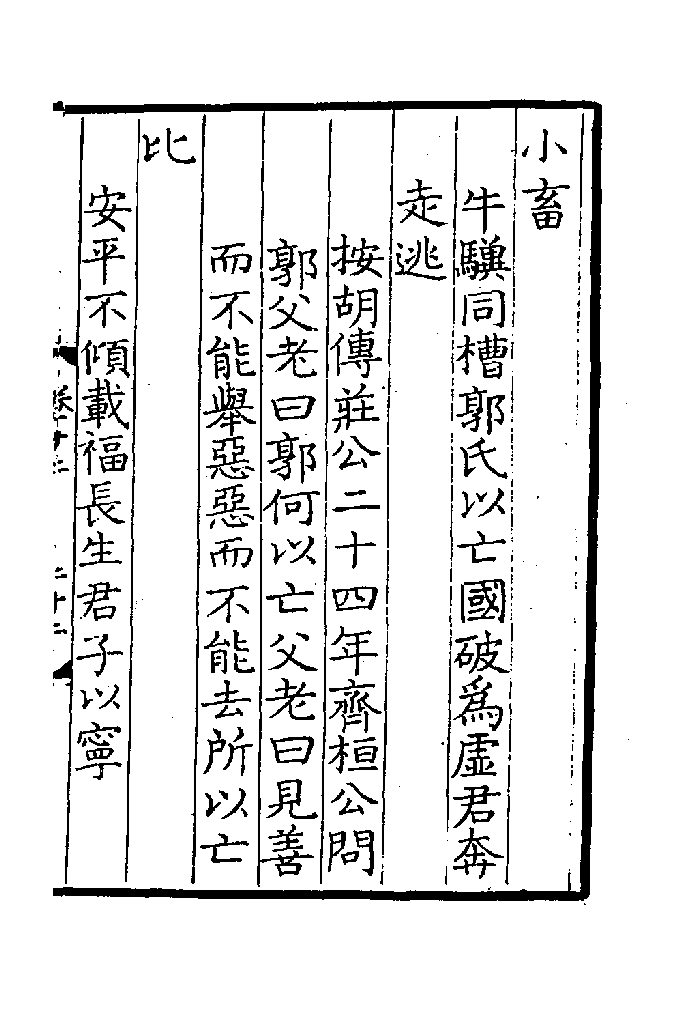 小畜
牛驥同槽郭氏以亡國破爲虛君奔
走逃
按胡傳莊公二十四年齊桓公問
郭父老曰郭何以亡父老曰見善
而不能舉惡惡而不能去所以亡
比
安平不傾載福長生君子以寧